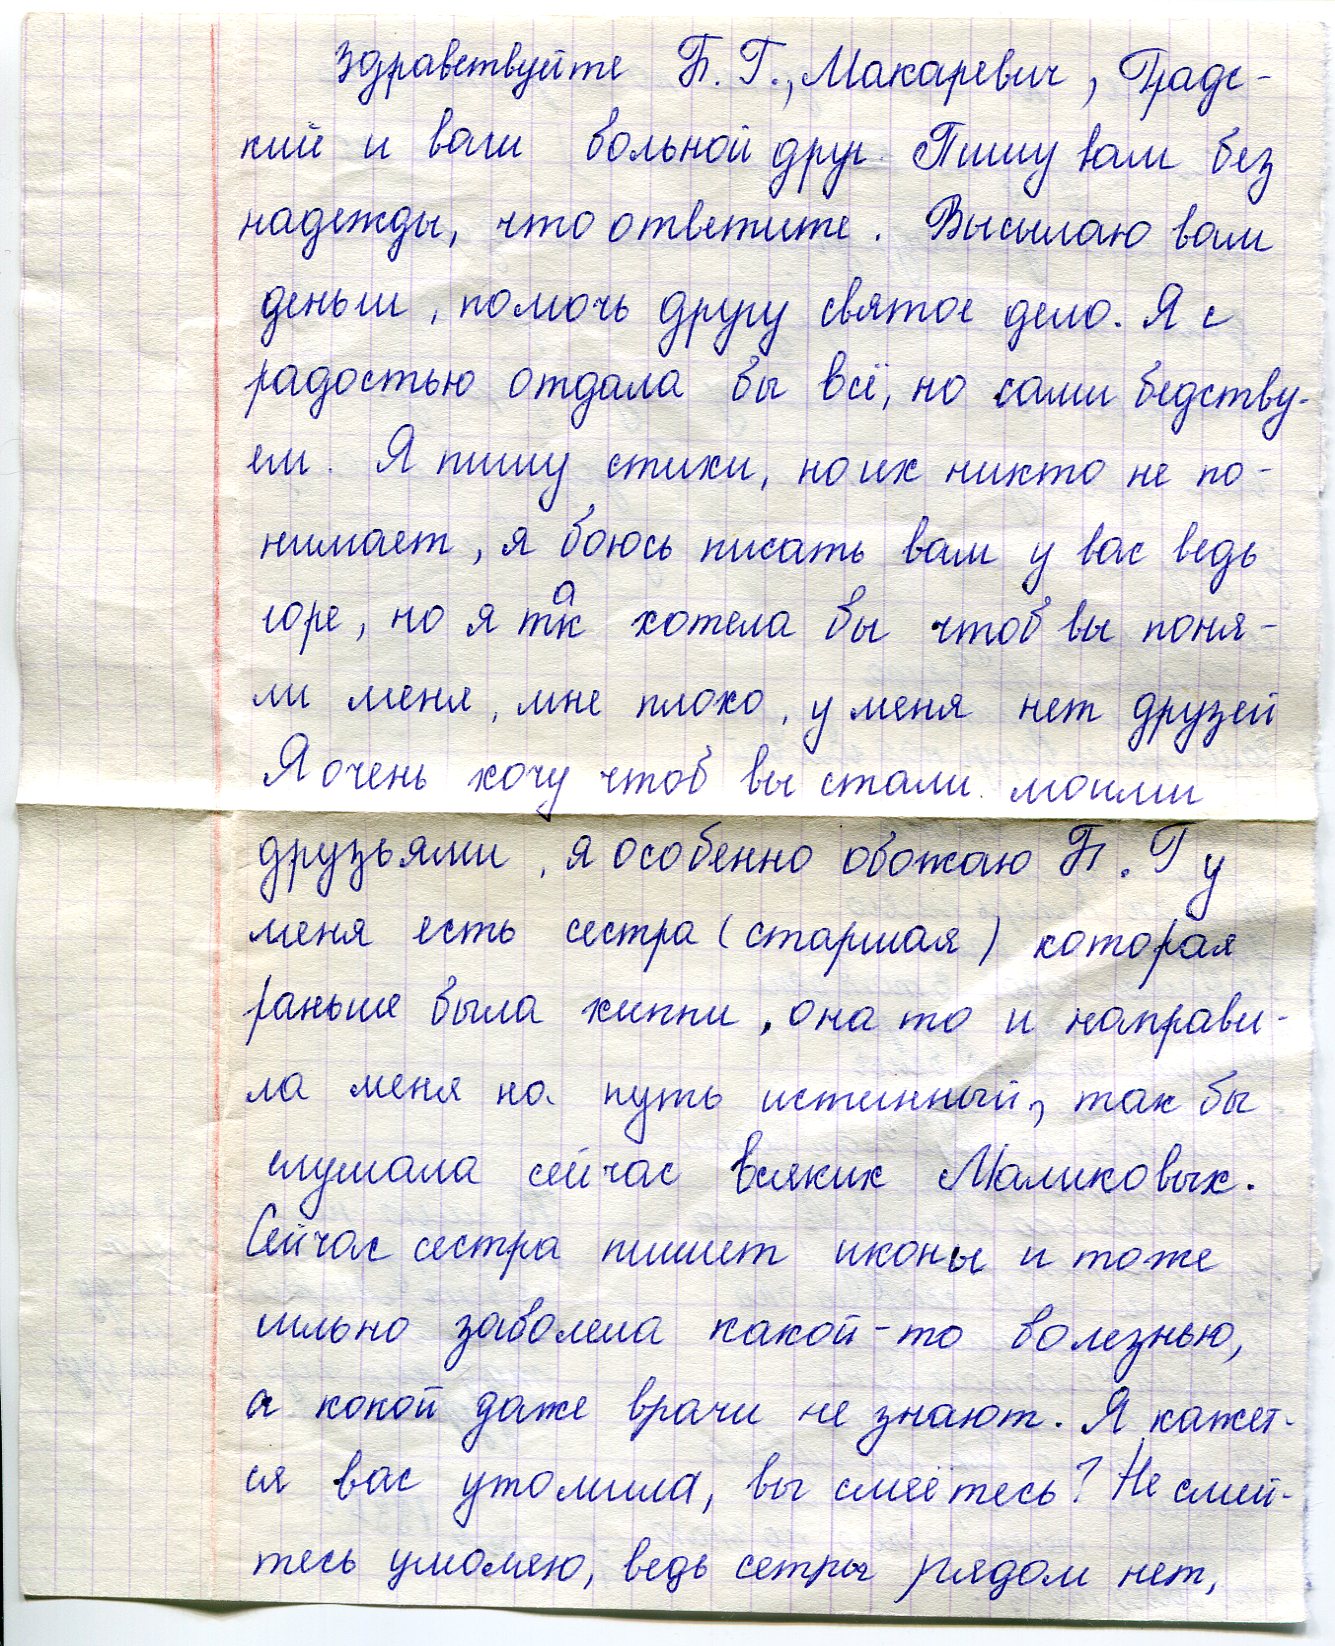 Здравствуйте Б. Г., Макаревич, Градс-
кий и ваш больной друг. Пишу вам без
надежды, что ответите. Высылаю вам
деньги, помочь другу святое дело. Я с
радостью отдала бы всё, но сами бедству-
ем. Я пишу стихи, но их никто не по-
нимает, я боюсь писать вам у вас ведь
горе, но я так хотела бы чтоб вы поня-
ли меня, мне плохо, у меня нет друзей
Я очень хочу чтоб вы стали моими
друзьями, я особенно обожаю Б. Г у
меня есть сестра (старшая) которая
раньше была хиппи, она то и направи-
ла меня на путь истинный, так бы
слушала сейчас всяких Маликовых.
Сейчас сестра пишет иконы и тоже
сильно заболела какой-то болезнью,
а какой даже врачи не знают. Я кажет-
ся вас утомила, вы смеётесь? Не смей-
тесь умоляю, ведь сетры рядом нет,